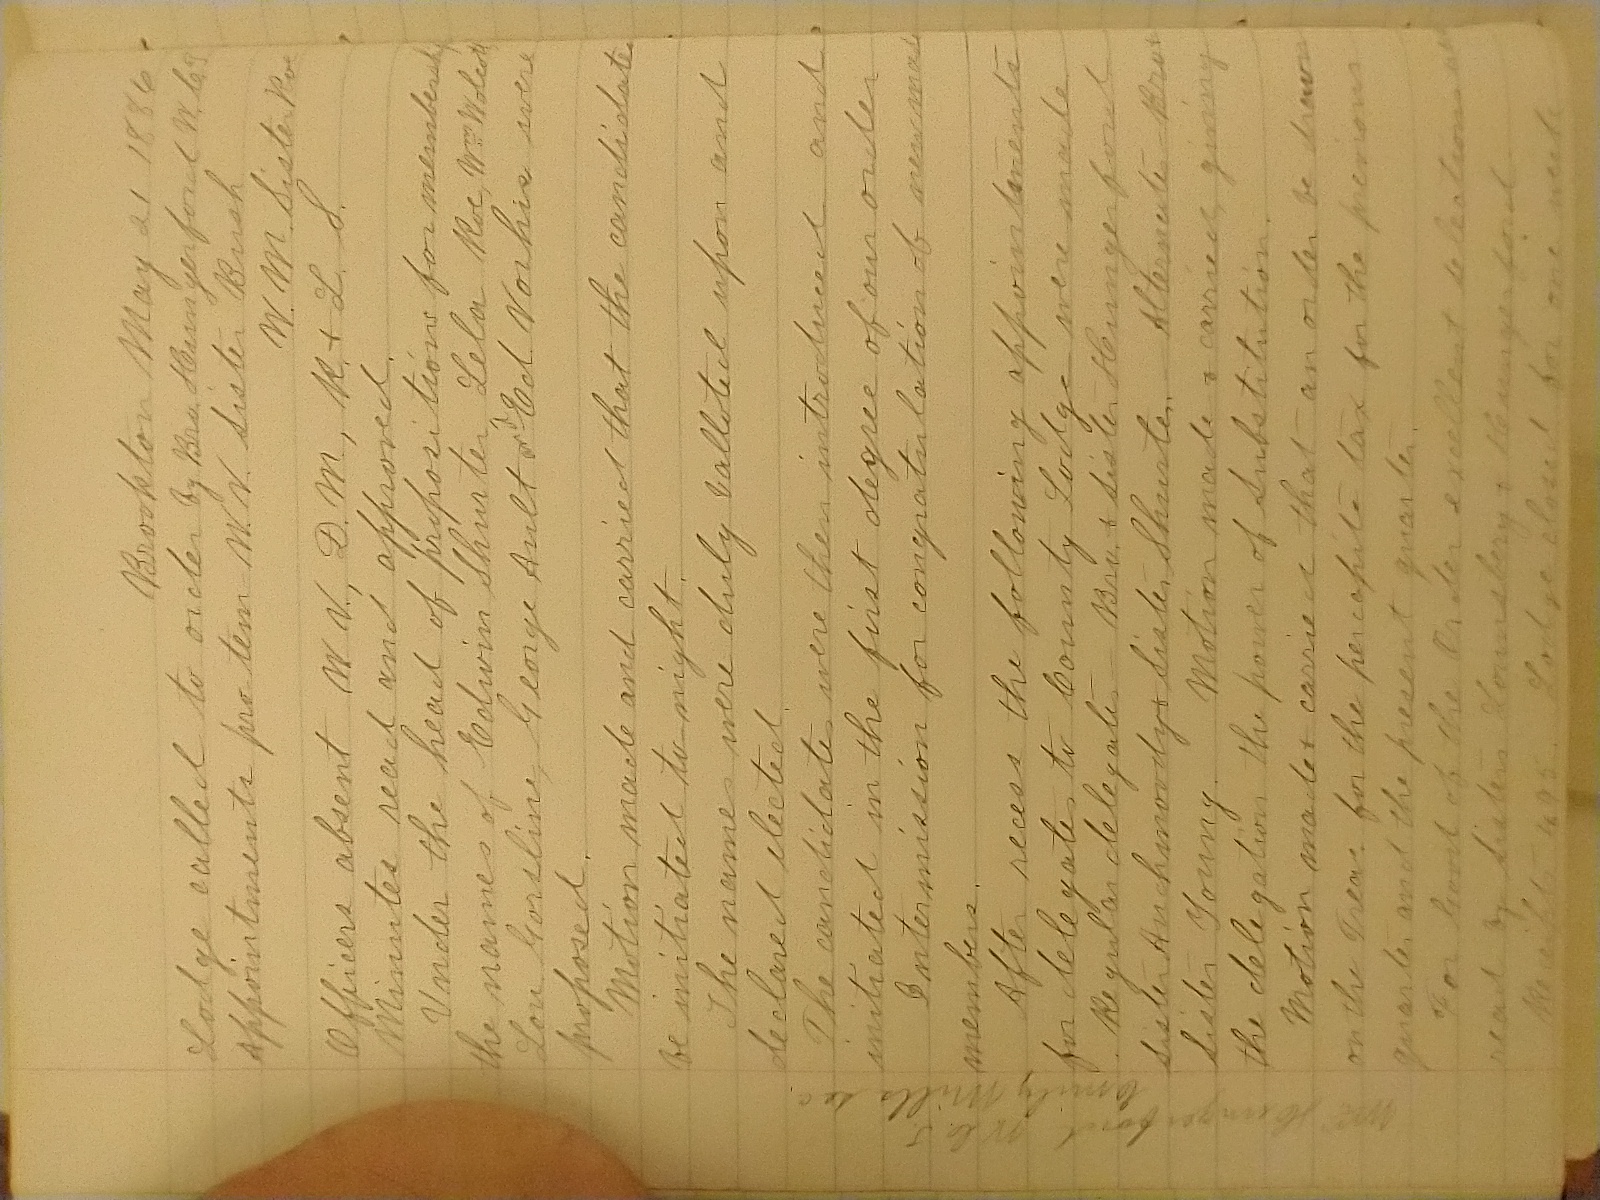 Brookton May 21 1886.
Lodge called to order by Bro. Hungerford W.C.T.
Appointments pro tem W.V. Sister Bush
W.M. Sister Roe
Officers absent W V., D.M., R. + L. S.
Minutes read and approved.
Under the head of propositions for membership
the names of Edwin Shurter, Lela Roe, Wm Wolcott
Lou Gorsline, George Ault and Ed. Vorhis were
proposed.
Motion made and carried that the candidates
be initiated to night.
The names were duly balloted upon and
declared elected.
The candidates were then introduced and
initiated in the first degree of our order
Intermission for congratulation of new made
members.
After recess the following appointments
for delegates to County Lodge were made
Regular delegates – Bro. & Sister Hungerford
Sister Auchmoody & Sister Shurter. – Alternates – Bro &
Sister Young. Motion made & carried, giving
the delegation the power of Substitution.
Motion made & carried that an order be drawn
on the Treas. for the percapita tax for the previous
quarter and the present quarter.
For Good of the Order excellent selections
read by Sisters Lounsbery & Hungerford
Receipts 4.95. Lodge closed for one week
Hungerford W.C.T.
Emily Mills Sec.